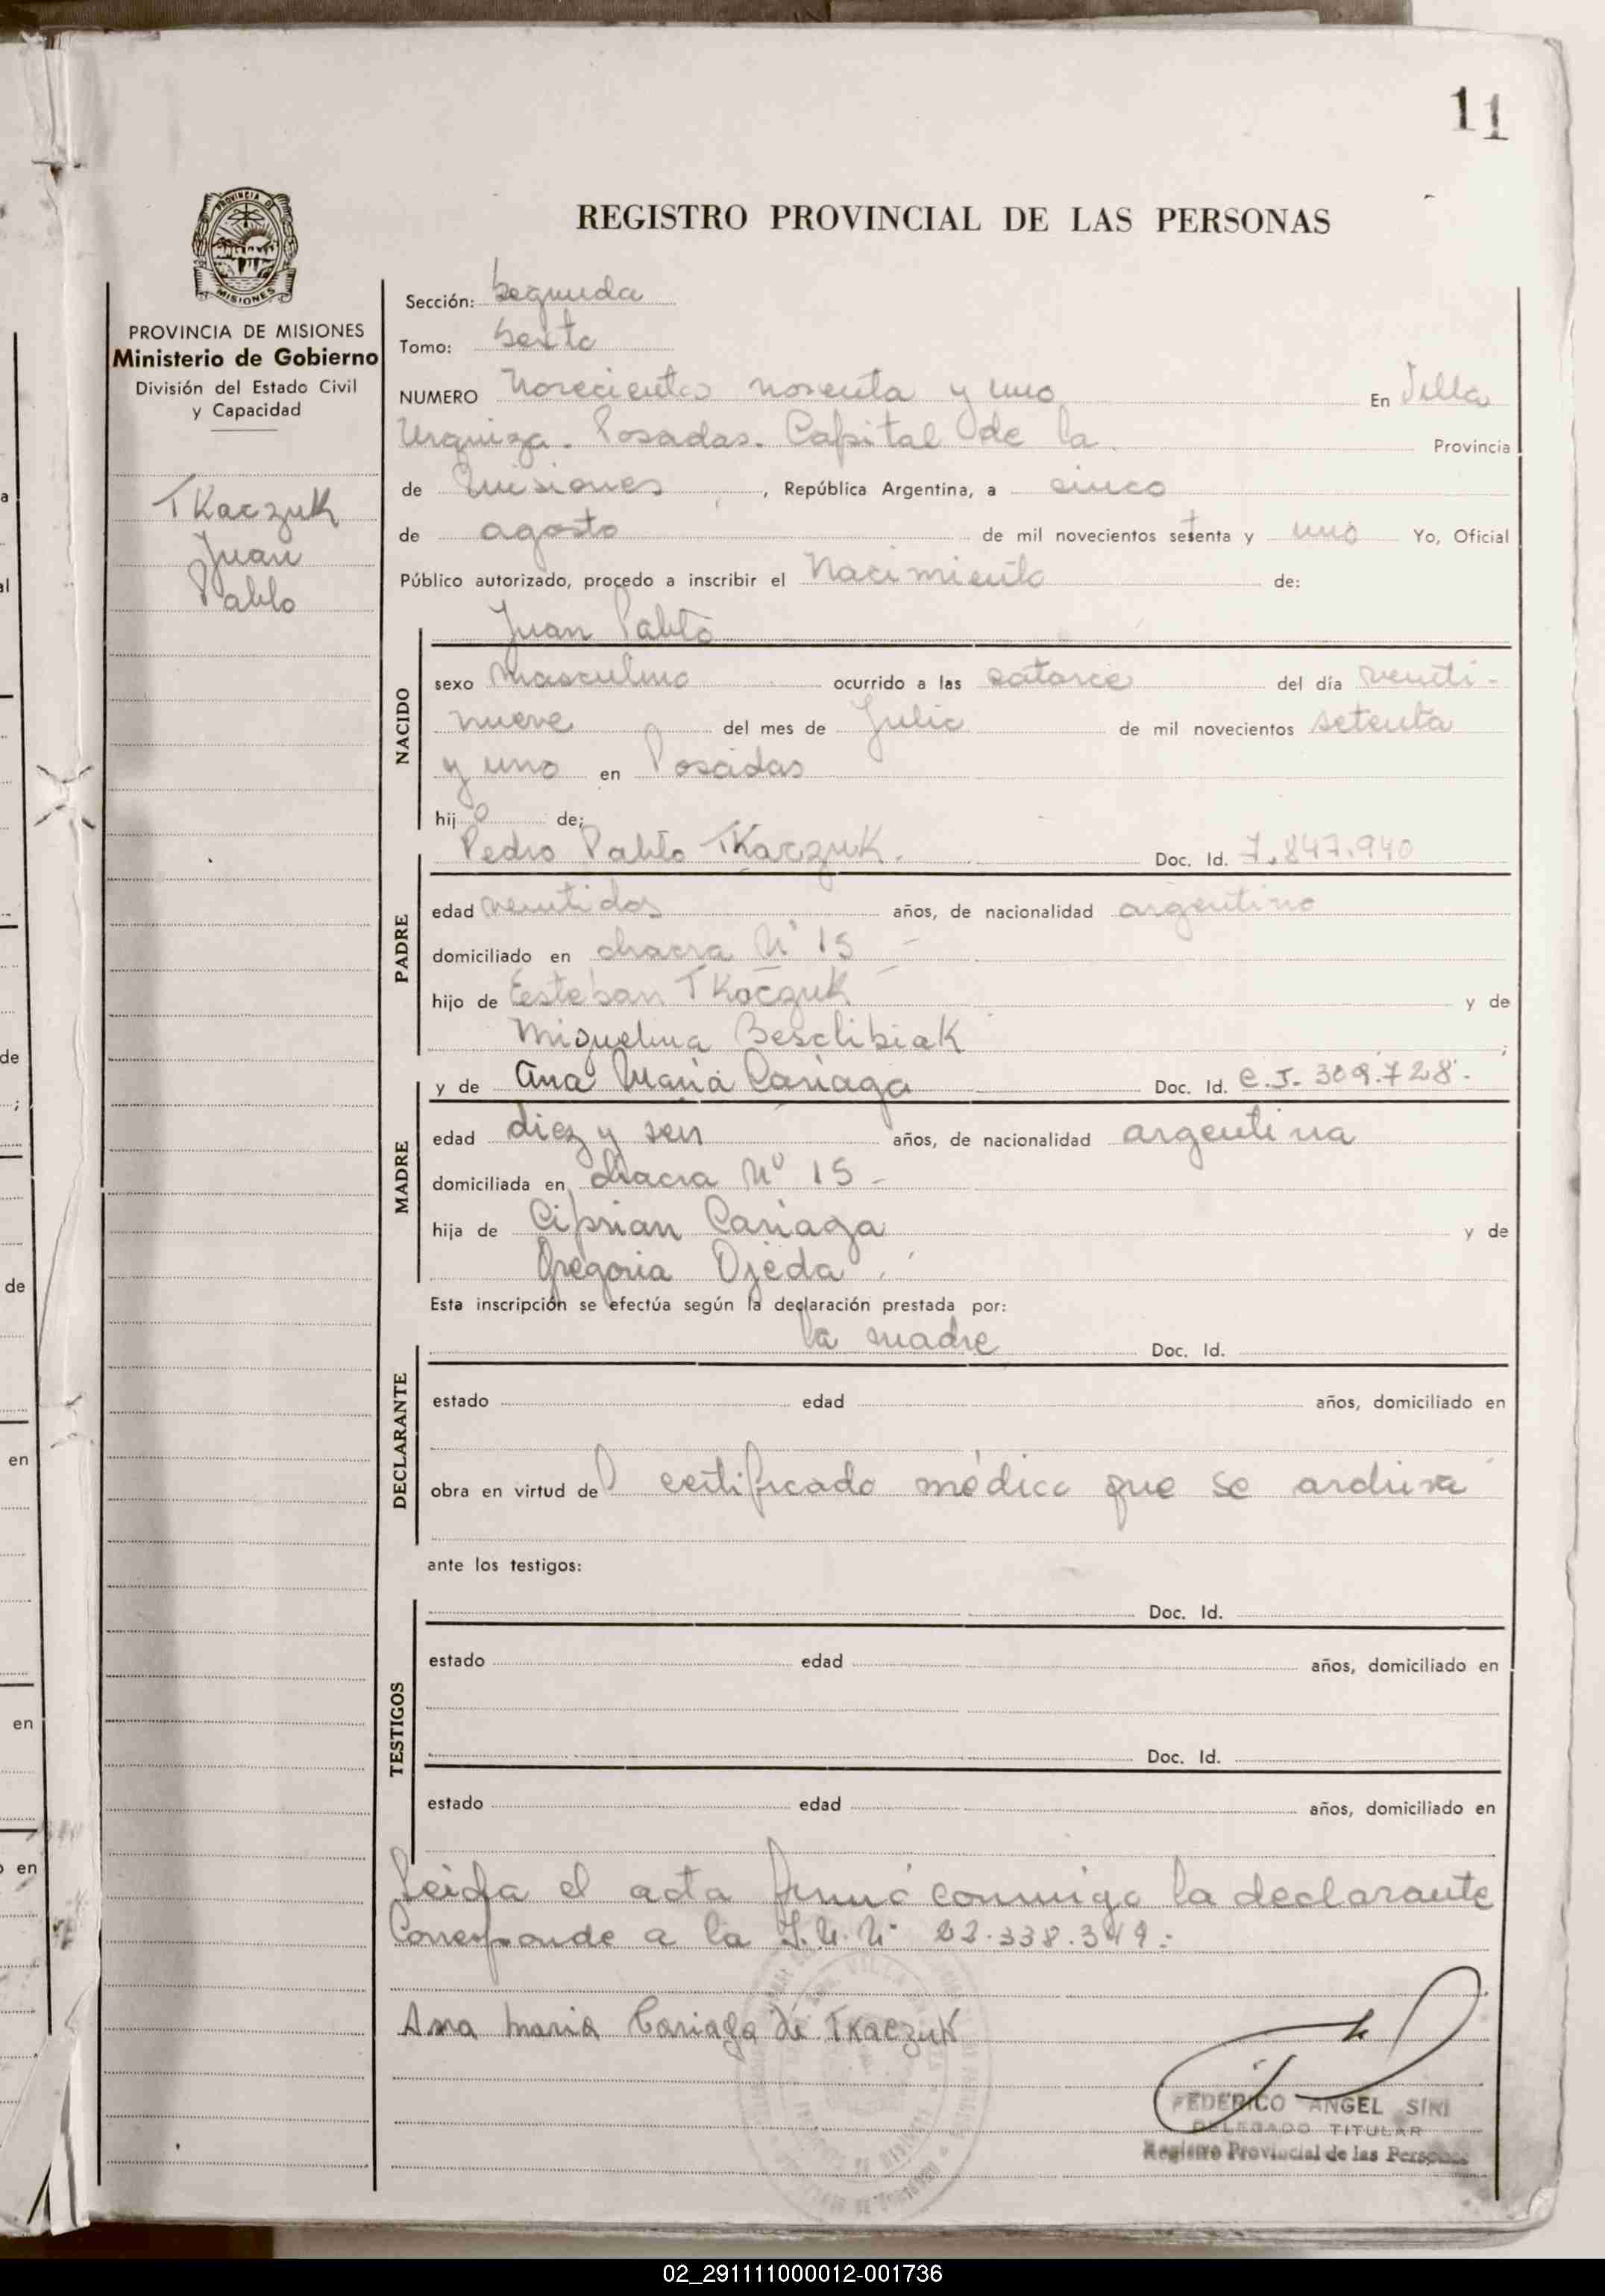 11
PROVINCIA DE
MISIONES
REGISTRO PROVINCIAL DE LAS PERSONAS
PROVINCIA DE MISIONES
Ministerio de Gobierno
División del Estado Civil
y Capacidad
TKaczuk
Juan
Pablo
Sección: Segunda
Tomo: Sexto
NUMERO Novecientos noventa y uno En Villa
Urquiza. Posadas. Capital de la Provincia
de Misiones, República Argentina, a cinco
de agosto de mil novecientos setenta y uno Yo, Oficial
Público autorizado, procedo a inscribir el Nacimiento de:
Juan Pablo
NACIDO
sexo masculino ocurrido a las catorce del día venti-
nueve del mes de Julio de mil novecientos setenta
y uno en Posadas
hijo de;
Pedro Pablo TKaczuK. Doc. Id. 7.847.940
PADRE
edad ventidos años, de nacionalidad argentino
domiciliado en chacra Nº 15 -
hijo de Esteban TKaczuK y de
Miguelina BesclibiaK ;
y de Ana Maria Cariaga Doc. Id. C.I. 309.728.
MADRE
edad diez y seis años, de nacionalidad argentina
domiciliada en chacra Nº 15 -
hija de Ciprian Cariaga y de
Gregoria Ojeda.
Esta inscripción se efectúa según la declaración prestada por:
la madre Doc. Id.
DECLARANTE
estado edad años, domiciliado en
obra en virtud del certificado médico que se archiva
ante los testigos:
Doc. Id.
TESTIGOS
estado edad años, domiciliado en
Doc. Id.
estado edad años, domiciliado en
Leida el acta firmó conmigo la declarante
Corresponde a la 22.338.349.
Ana maria Cariaga de TKaczuK
FEDERICO ANGEL SIRI
DELEGADO TITULAR
Registro Provincial de las Personas
02_291111000012-001736